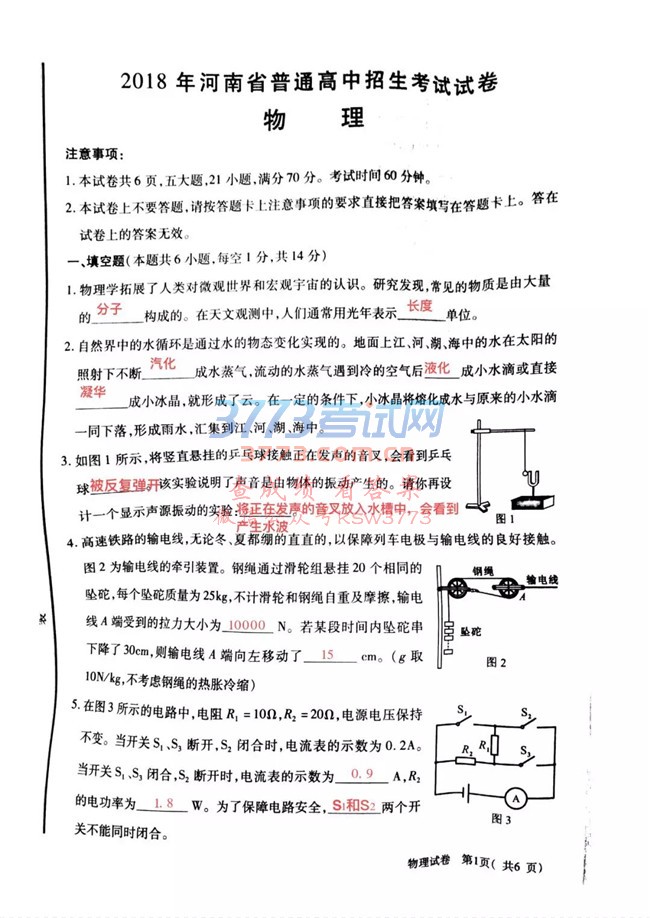 2018年河南省普通高中招生考试试卷
物 理
注意事项：
1.本试卷共6页,五大题,21小题,满分70分。考试时间60分钟。
2.本试卷上不要答题,请按答题卡上注意事项的要求直接把答案填写在答题卡上。答在
试卷上的答案无效。
一、填空题(本题共6小题,每空1分,共14分)
1.物理学拓展了人类对微观世界和宏观宇宙的认识。研究发现,常见的物质是由大量
的 分子 构成的。在天文观测中,人们通常用光年表示 长度 单位。
2.自然界中的水循环是通过水的物态变化实现的。地面上江、河、湖、海中的水在太阳的
照射下不断 汽化 成水蒸气,流动的水蒸气遇到冷的空气后 液化 成小水滴或直接
凝华 成小冰晶,就形成了云。在一定的条件下,小冰晶将熔化成水与原来的小水滴
一同下落,形成雨水,汇集到江、河、湖、海中。
3773考试网
3773.com.cn
3.如图1所示,将竖直悬挂的乒乓球接触正在发声的音叉,会看到乒乓
球 被反复弹开 。该实验说明了声音是由物体的振动产生的。请你再设
查成绩 看答案
计一个显示声源振动的实验: 将正在发声的音叉放入水槽中，会看到
产生水波
微信公众号KSW3773
图1
4.高速铁路的输电线,无论冬、夏都绷的直直的,以保障列车电极与输电线的良好接触。
图2为输电线的牵引装置。钢绳通过滑轮组悬挂20个相同的
坠砣,每个坠砣质量为25kg,不计滑轮和钢绳自重及摩擦,输电
线A端受到的拉力大小为 10000 N。若某段时间内坠砣串
下降了30cm,则输电线A端向左移动了 15 cm。(g取
10N/kg,不考虑钢绳的热胀冷缩)
钢绳
输电线
A
坠砣
图2
5.在图3所示的电路中,电阻R₁=10Ω,R₂=20Ω,电源电压保持
不变。当开关S₁、S₃断开,S₂闭合时,电流表的示数为0.2A。
当开关S₁、S₃闭合,S₂断开时,电流表的示数为 0.9 A,R₂
的电功率为 1.8 W。为了保障电路安全, S1和S2 两个开
关不能同时闭合。
S₁
S₂
R₁
R₂
S₃
A
图3
物理试卷 第1页(共6页)